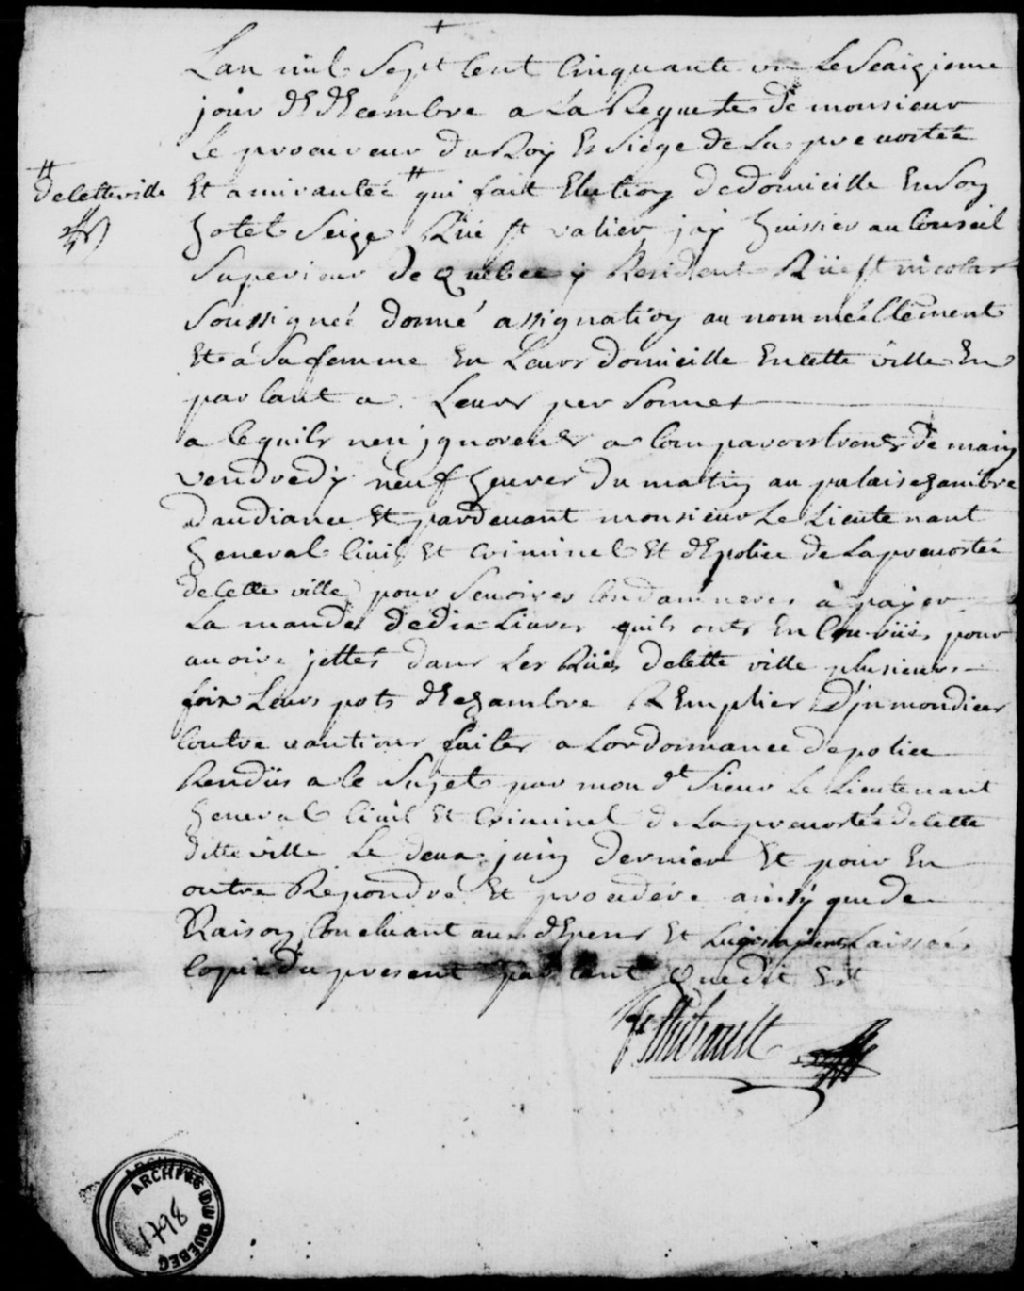 +
Lan mil Sept Cent Cinquante un Le Seaizieme
jour de decembre a La Requeste de monsieur
Le procureur du Roy En Siege de La prevostée
Et amirautée # qui fait Election de domicille En Son
# de cette ville
hotel Seize Rüe St valier jay huissier au Conseil
Superieur de Quebec y Resident Rüe St nicolas
Soussigneé donné assignation au nommeé Clement
Et a Sa femme En Leurs domicille En cette ville En
parlant a Leurs personnes
a Ce quils nen jgnorent a Comparoistrons demain
vendredy neuf heures du matin au palais chambre
daudiance Et pardevant monsieur Le Lieutenant
general Civil Et Criminel Et de police de La prevostée
de Cette ville pour Se voires Condamneres à payer
La mande de dix Livres quils onts En Courüe pour
avoire jettes dans Les Rües de Cette ville plusieurs
fois Leurs pots de chambre Remplies D'jnmondices
Contrevantions faites a Lordonnance de police
Rendüs a Ce Sujet par mon dt Sieur Le Lieutenant
general Civil Et Criminel de La prevostée de Cette
ditte ville Le deux juin dernier Et pour En
outre Repondre Et proceder ainsy que de
Raison Concluant aux depens Et Laissée
Copie du present parlant que dit Est
Thibault
ARCHIVES DU QUEBEC
1798